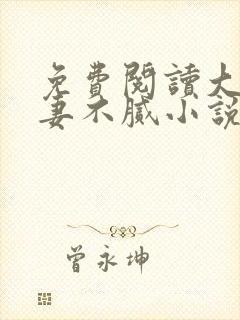 免費閱讀大
妻不膩小說
曾永坤